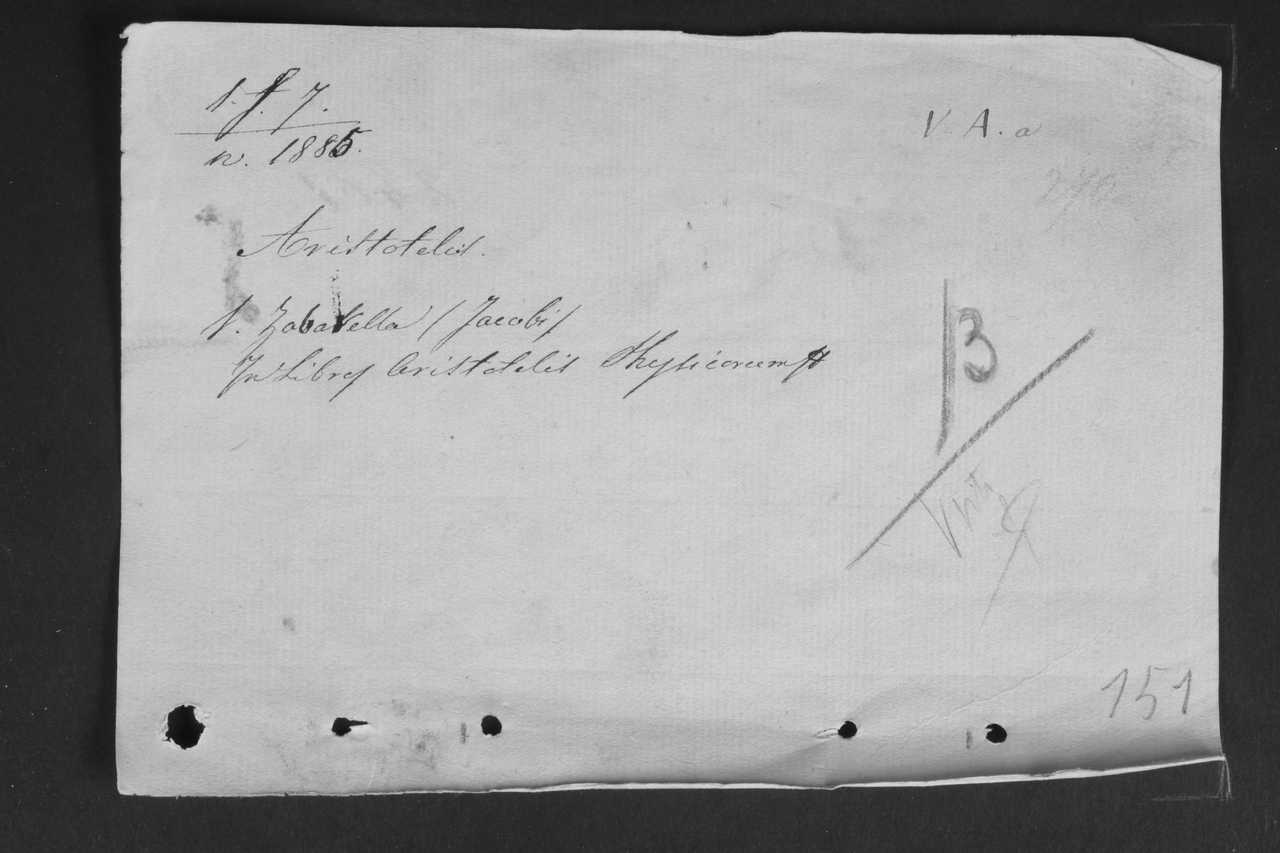 1. f. 7.
n. 1885.
V. A. a
Aristotelis.
v. Zabarella (Jacobi)
In Libros Aristotelis Physicorum
B
151